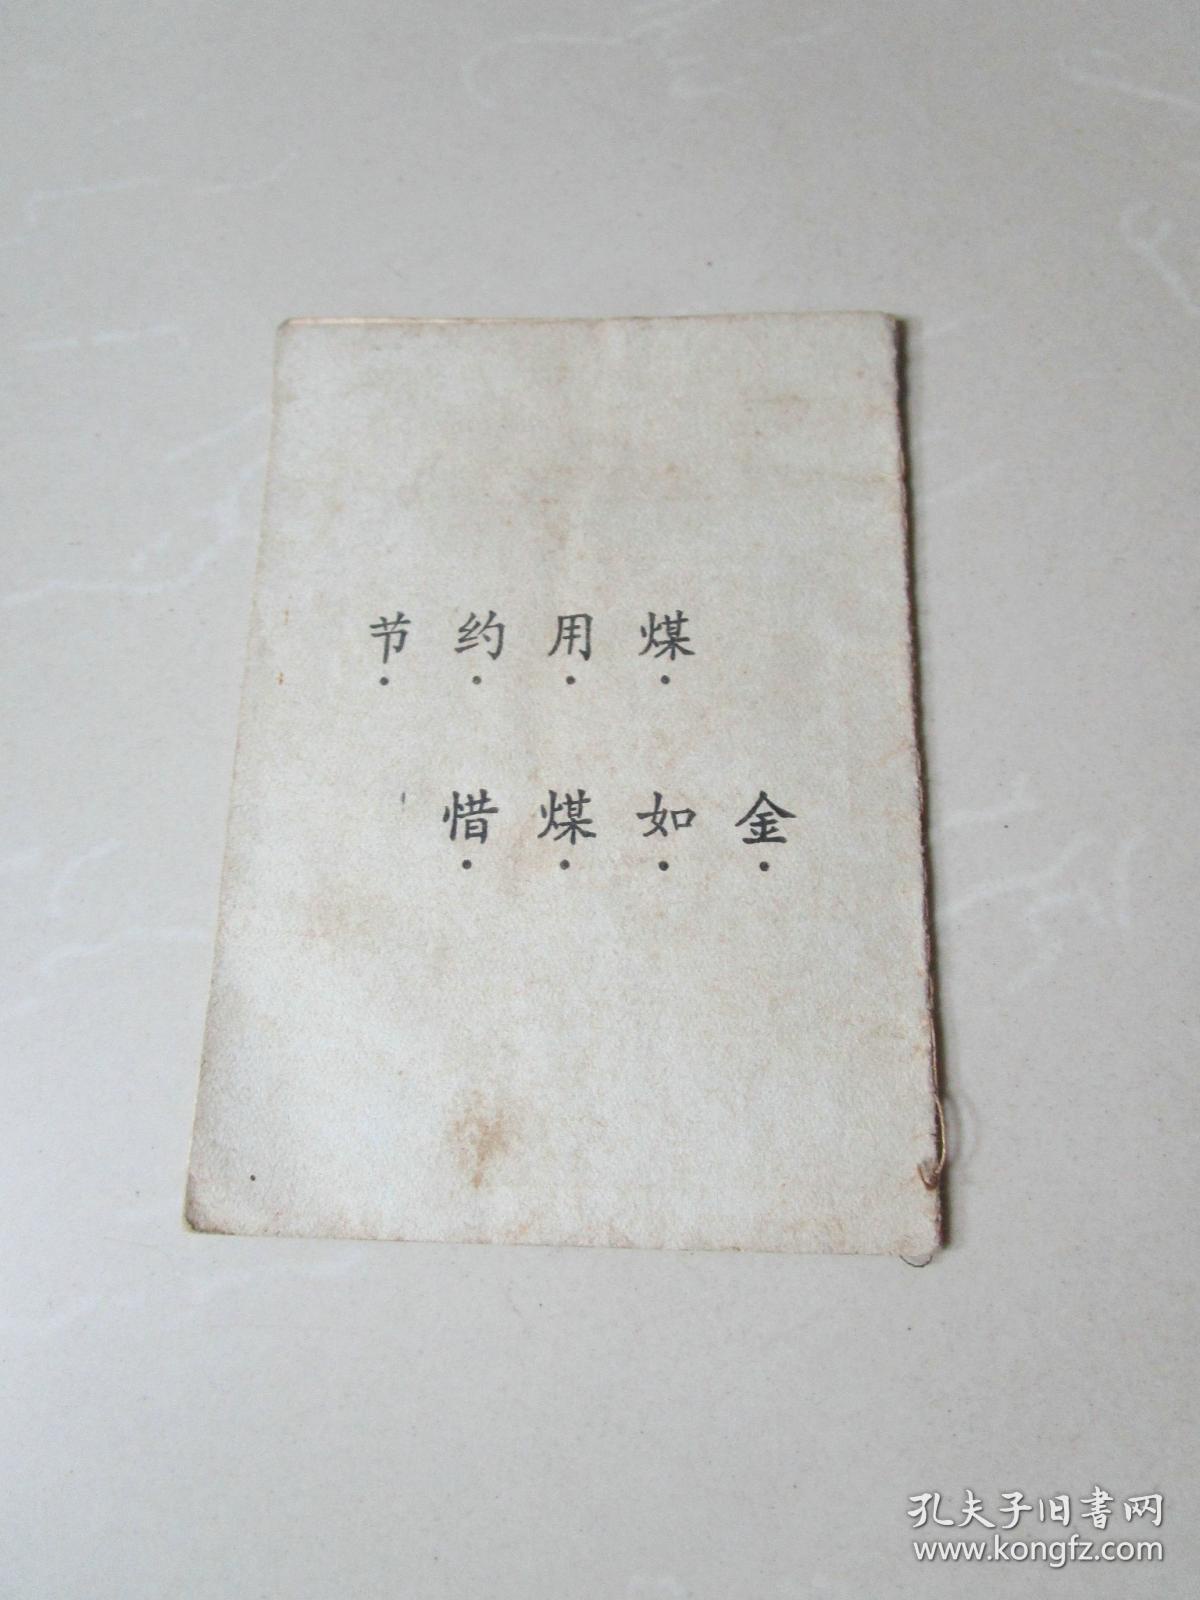 节约用煤
惜煤如金
孔夫子旧书网
www.kongfz.com